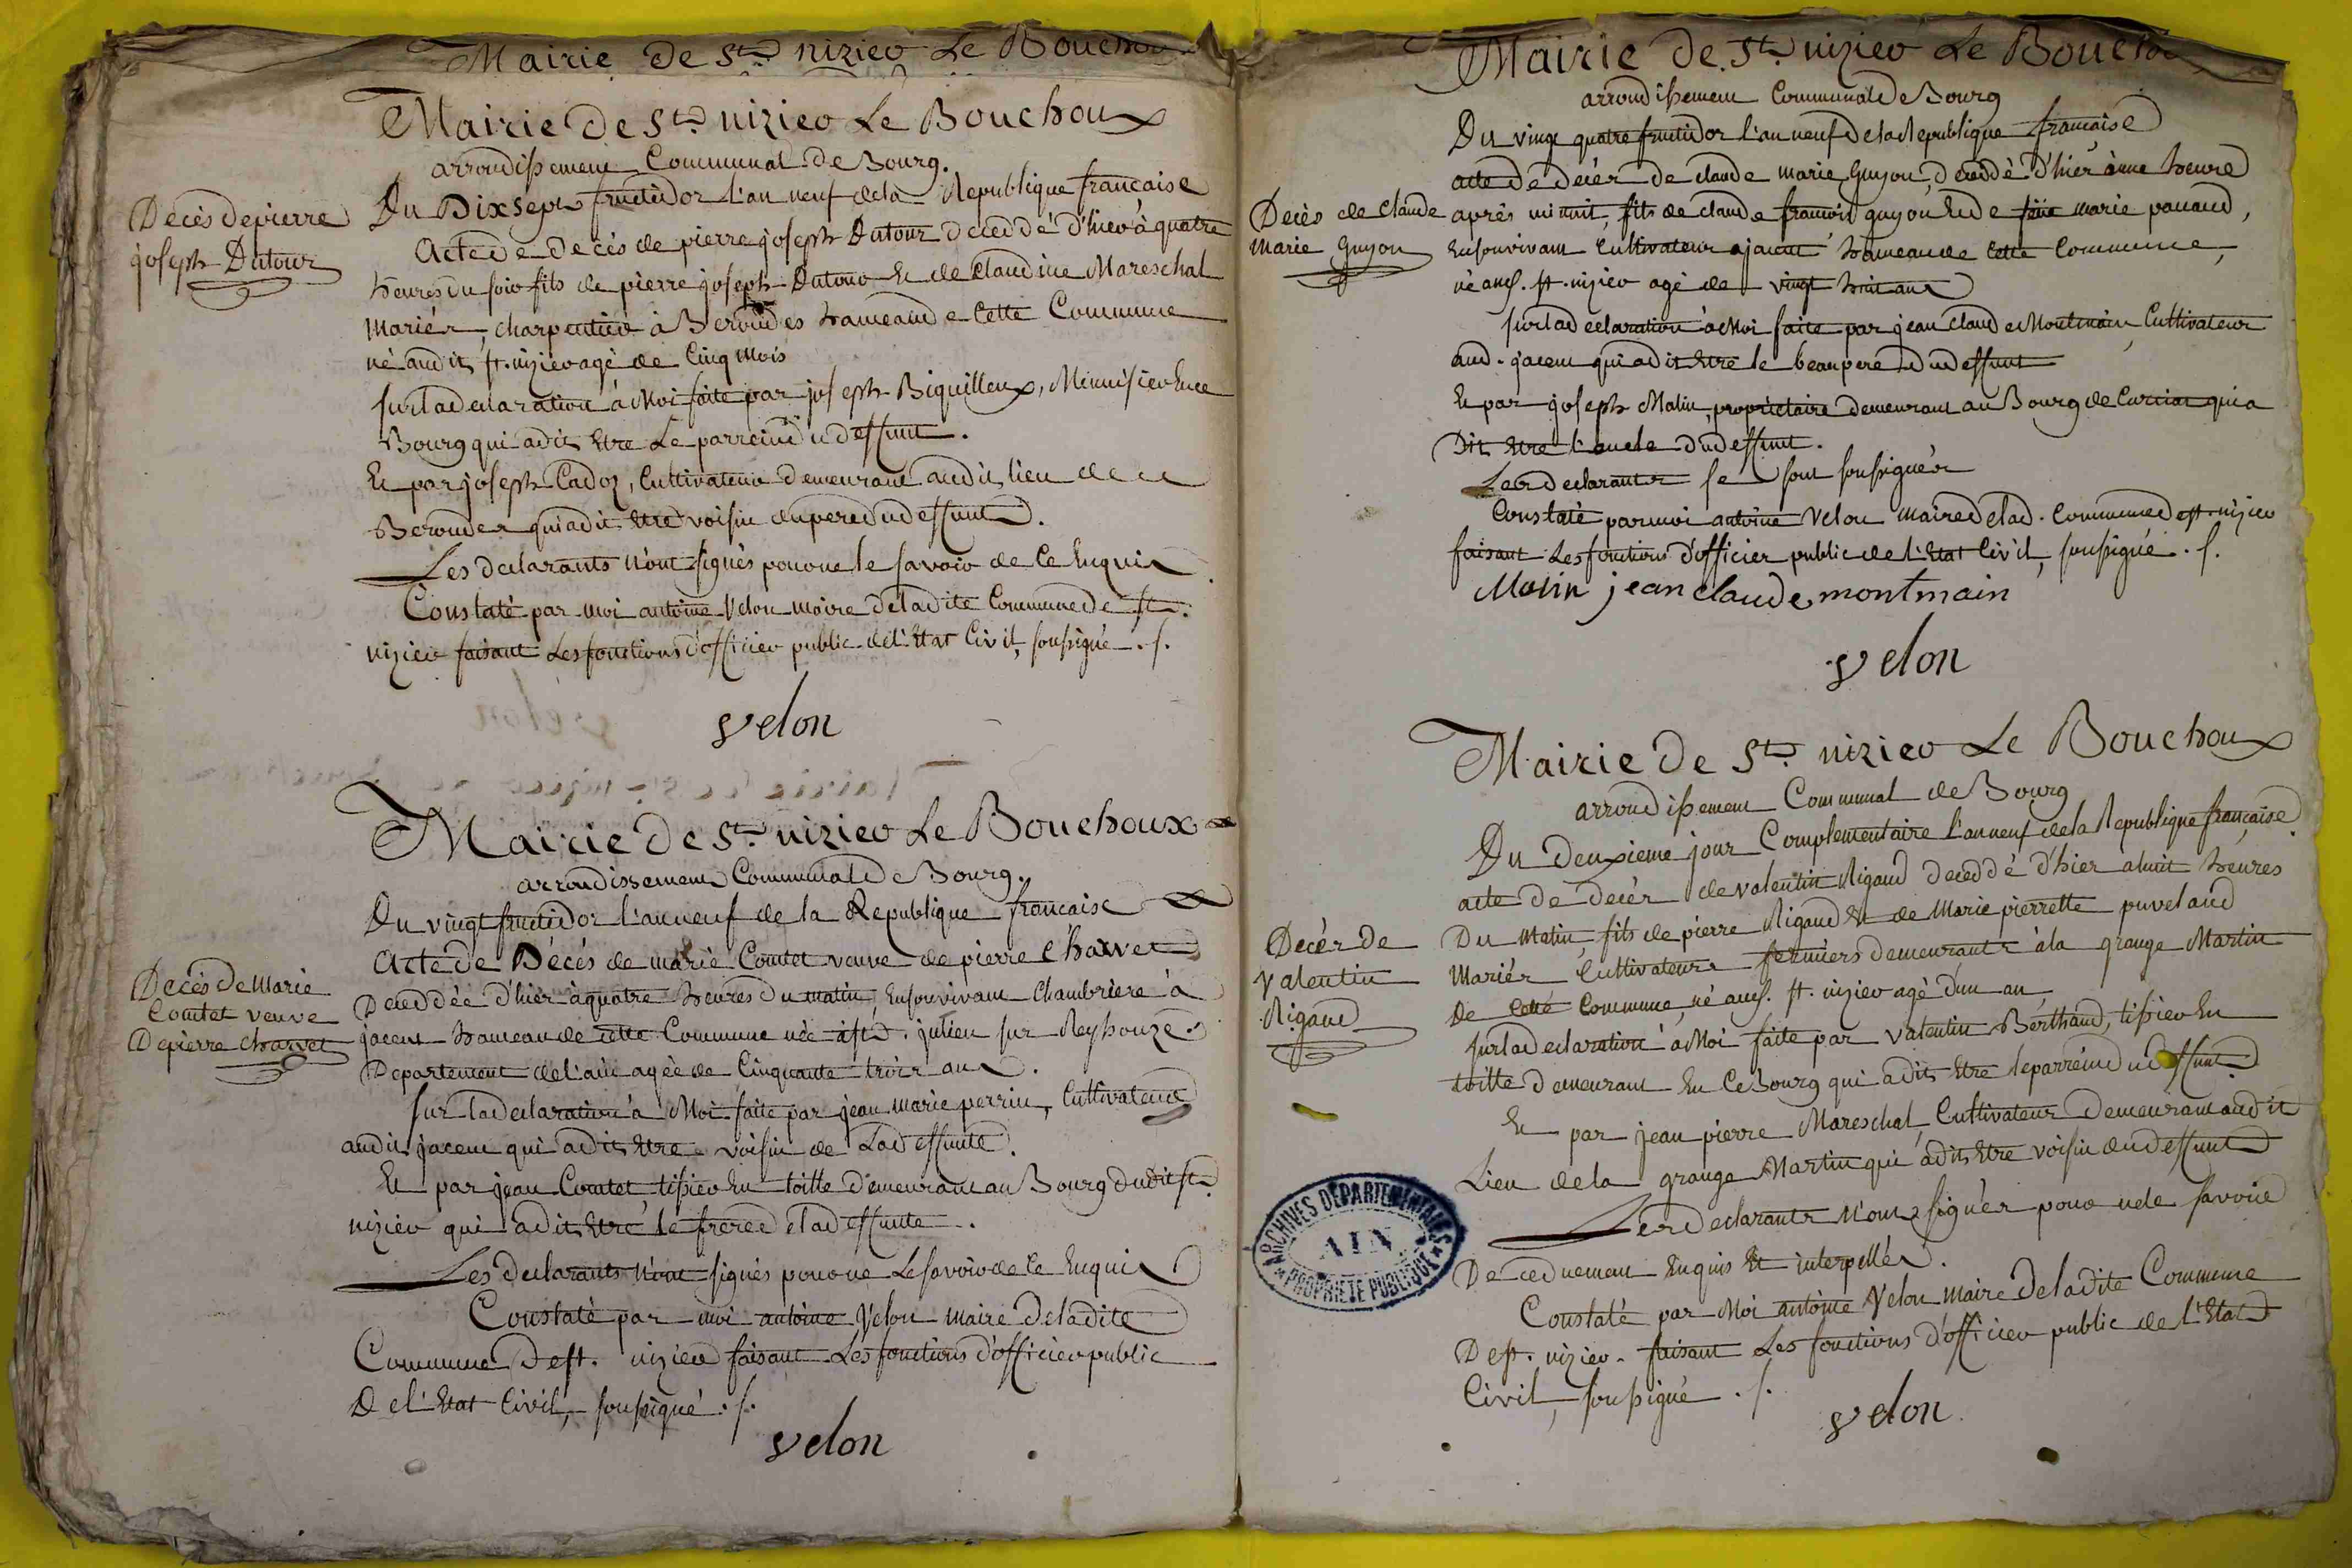 Mairie De St. nizier Le Bouchoux
Mairie De St. nizier Le Bouchoux
arrondissement Communal de Bourg.
Décès de pierre
joseph Dutour
Du Dix sept fructidor l'an neuf de la Republique française
Acte de decés de pierre joseph Dutour decedé d'hier à quatre
heures du soir fils de pierre joseph Dutour Et de Claudine Mareschal
mariés, charpentier à Beroudes hameau de Cette Commune
né audit st. nizier agé de Cinq mois
sur la declaration à Moi faite par joseph Biquilleux, Menuisier En ce
Bourg qui a dit Etre Le parrein du deffunt.
Et par joseph Cadoz, Cultivateur demeurant audit lieu de
Beroudes qui a dit Etre voisin du pere du deffunt.
Les declarants n'ont signés pour ne le savoir de Ce Enquis
Constaté par moi antoine Velon maire de ladite Commune de st.
nizier faisant Les fonctions d'officier public de l'Etat Civil, soussigné . /.
velon
Mairie De St. nizier Le Bouchoux
arrondissement Communal de Bourg.
Du vingt fructidor l'an neuf de la Republique francaise
Décès de Marie
Comtet veuve
De pierre charvet
Acte de Décés de marie Comtet veuve de pierre Charvet
Decedée d'hier à quatre heures du matin, En son vivant Chambriere à
jacent hameau de cette Commune née à st. julien sur Reyhouze
Departement de l'ain agée de Cinquante trois ans.
sur la declaration à Moi faite par jean marie perrin, Cultivateur
audit jacent qui a dit Etre voisin de La deffunte.
Et par jean Comtet tissier En toille demeurant au Bourg dudit st.
nizier qui a dit Etre le frere de la deffunte.
Les declarants n'ont signés pour ne Le savoir de Ce Enquis
Constaté par moi antoine Velon maire de ladite
Commune de st. nizier faisant Les fonctions d'officier public
De l'Etat Civil, soussigné . /.
velon
Mairie De St. nizier Le Bouchoux
arrondissement Communal de Bourg
Du vingt quatre fructidor l'an neuf de la Republique française
acte de decés de claude marie Guyon, decedé d'hier à une heure
Decès de Claude
Marie Guyon
après minuit, fils de claude francois guyon Et de marie panaud,
En son vivant Cultivateur à jacent hameau de Cette Commune,
né aud. st. nizier agé de vingt huit ans
sur la declaration à Moi faite par jean Claude Montmain, Cultivateur
aud. jacent qui a dit Etre le beau pere du deffunt
Et par joseph Malin, propriétaire demeurant au Bourg de Curciat qui a
Dit Etre l'oncle du deffunt.
Les declarants se sont soussignés
Constaté par moi antoine Velon maire de lad. Commune de st. nizier
faisant Les fonctions d'officier public de l'Etat Civil, soussigné . /.
Malin jean claude montmain
velon
Mairie De St. nizier Le Bouchoux
arrondissement Communal de Bourg
Du deuxieme jour Complementaire l'an neuf de la Republique française
acte de decés de valentin Rigaud decedé d'hier à huit heures
Decés de
Valentin
Rigaud
Du Matin, fils de pierre Rigaud Et de Marie pierrette puveland
Mariés Cultivateurs fermiers demeurants à la grange Martin
De Cette Commune, né aud. st. nizier agé d'un an
sur la declaration à Moi faite par valentin Berthaud, tissier En
toille demeurant En Ce Bourg qui a dit Etre le parrein du deffunt
Et par jean pierre Mareschal, Cultivateur demeurant audit
Lieu de la grange Martin qui a dit Etre voisin du deffunt
Les declarants n'ont signés pour ne le savoir
De ce duement Enquis Et interpellés.
Constaté par Moi antoine Velon maire de ladite Commune
De st. nizier. faisant Les fonctions d'officier public de l'Etat
Civil, soussigné . /.
velon
ARCHIVES DÉPARTEMENTALES
AIN
PROPRIÉTÉ PUBLIQUE